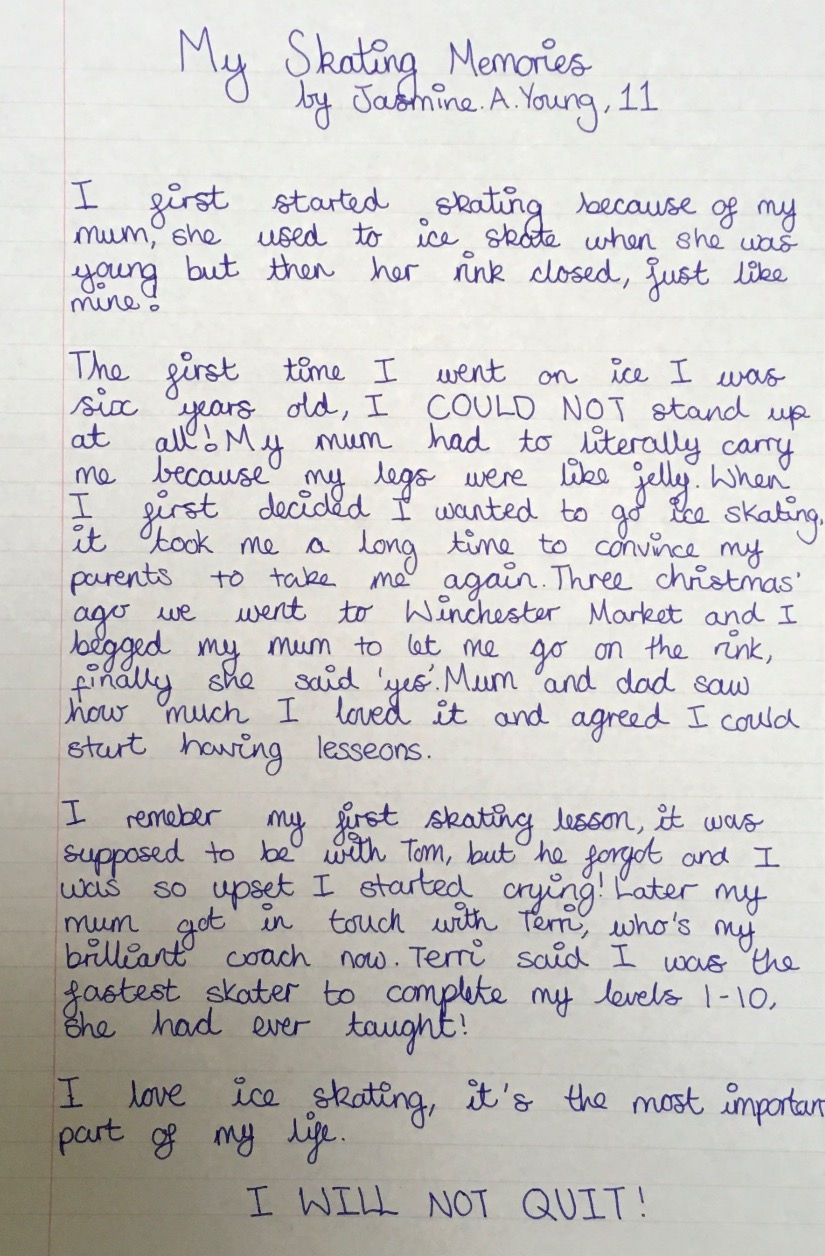 My Skating Memories
by Jasmine.A.Young, 11
I first started skating because of my
mum, she used to ice skate when she was
young but then her rink closed, just like
mine!
The first time I went on ice I was
six years old, I COULD NOT stand up
at all! My mum had to literally carry
me because my legs were like jelly. When
I first decided I wanted to go ice skating,
it took me a long time to convince my
parents to take me again. Three christmas'
ago we went to Winchester Market and I
begged my mum to let me go on the rink,
finally she said 'yes'. Mum and dad saw
how much I loved it and agreed I could
start having lesseons.
I remeber my first skating lesson, it was
supposed to be with Tom, but he forgot and I
was so upset I started crying! Later my
mum got in touch with Terri, who's my
brilliant coach now. Terri said I was the
fastest skater to complete my levels 1-10,
she had ever taught!
I love ice skating, it's the most importan
part of my life.
I WILL NOT QUIT!